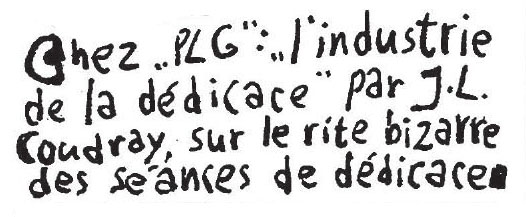 Chez „PLG": „l'industrie
de la dédicace" par J.L.
Coudray, sur le rite bizarre
des séances de dédicace